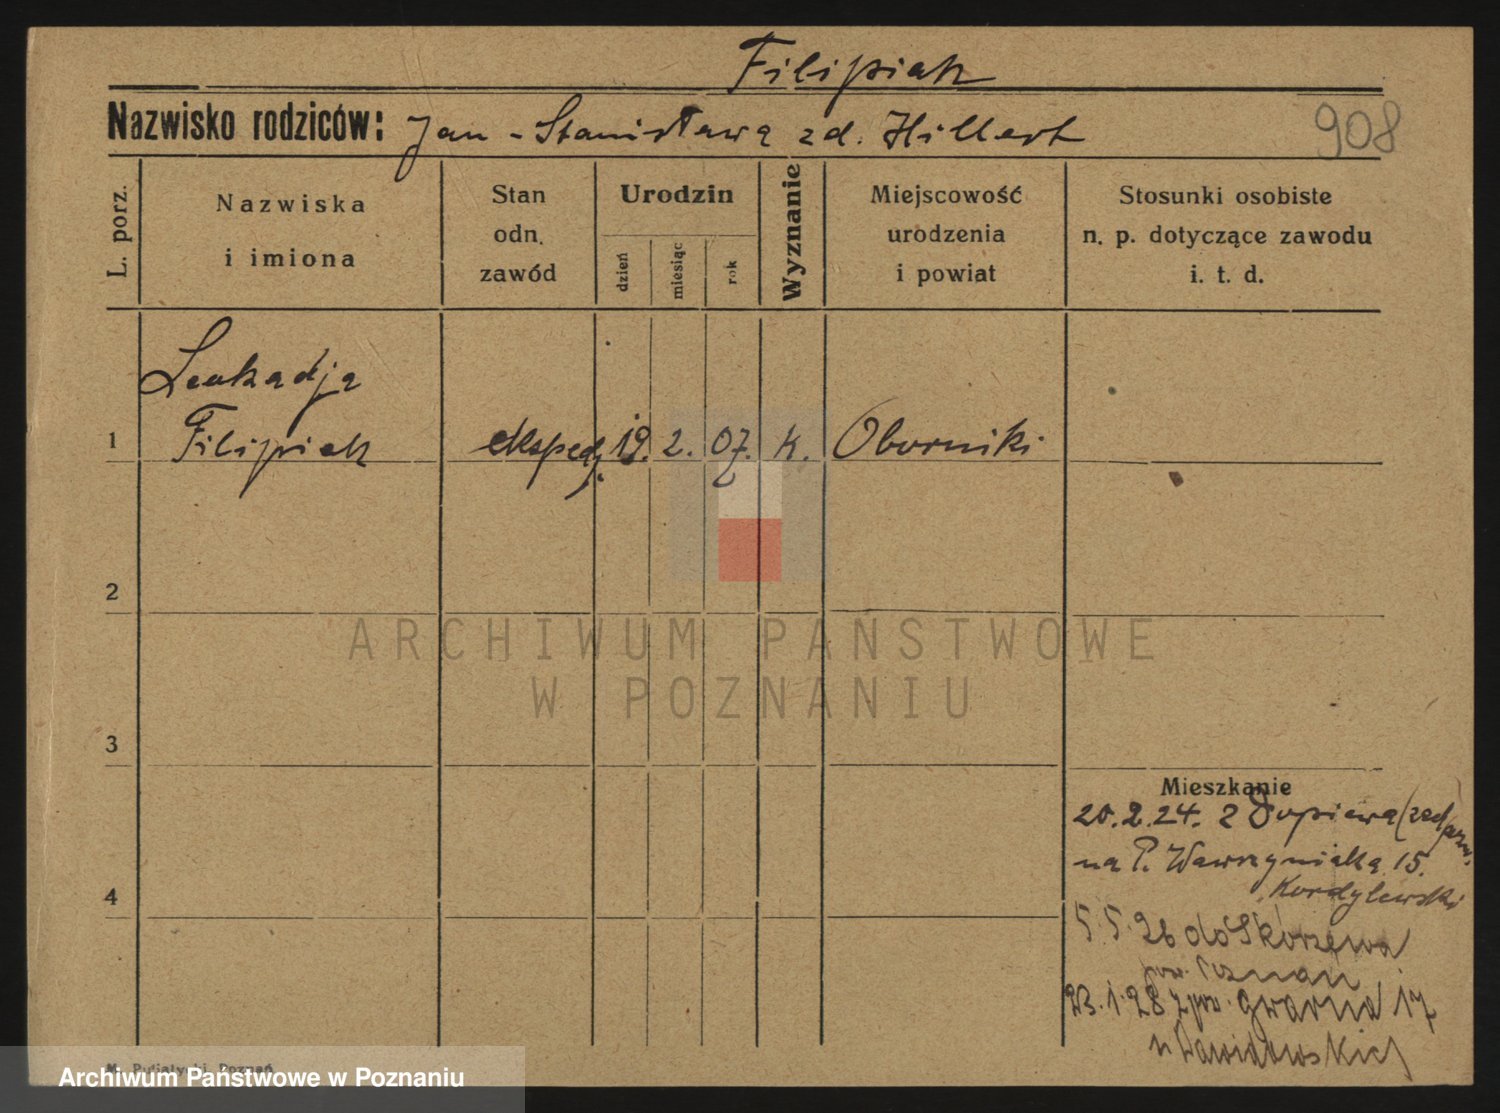 Filipiak
Nazwisko rodziców: Jan - Stanisława zd. Hillert
908
L. porz.
Nazwiska
i imiona
Stan
odn.
zawód
Urodzin
dzień
miesiąc
rok
Wyznanie
Miejscowość
urodzenia
i powiat
Stosunki osobiste
n. p. dotyczące zawodu
i. t. d.
Leokadja
1 Filipiak ekspedj. 19. 2. 07. k. Oborniki
2
ARCHIWUM PAŃSTWOWE
W POZNANIU
3
Mieszkanie
20.2.24. z Dopiewa
4 na P. Wawrzyniaka 15.
Kordylewski
5.5.26 do Skórzewa
pow. Poznań
23.1.28 z pow. Gwarna 17
u Dawidowskich
Poznań
Archiwum Państwowe w Poznaniu